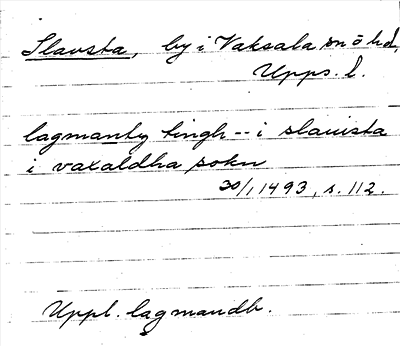 Slavsta, by i Vaksala sn o hd,
Upps. l.
lagmantz tingh -- i slauista
i vaxaldha sokn
30/1 1493, s. 112.
Uppl. lagmandb.